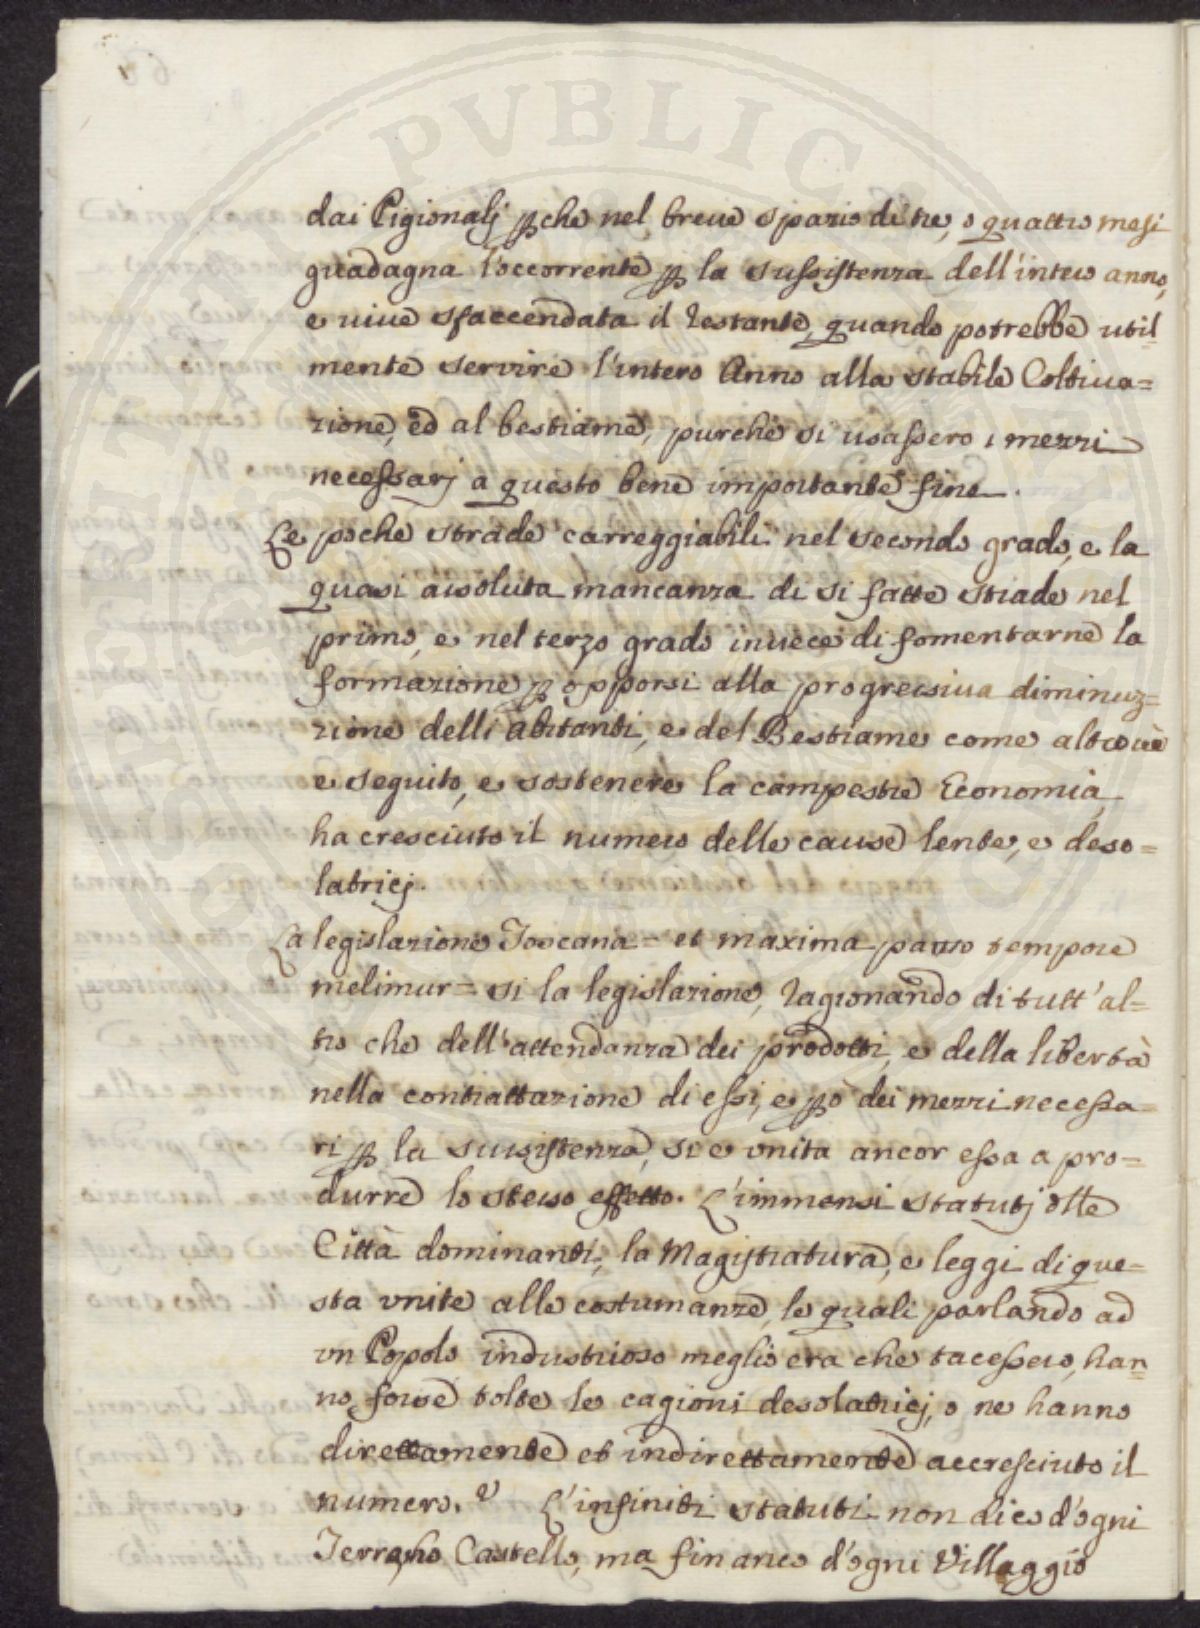 dai Pigionalj p che nel breve spazio di tre, o quattro mesi
guadagna l'occorrente p la sussistenza dell'intero anno,
e vive sfaccendata il restante, quando potrebbe util=
mente servire l'intero Anno alla stabile Coltiva=
zione, ed al bestiame, purchè si usassero i mezzi
necessarj a questo bene importante fine.
Le poche strade carreggiabili nel secondo grado, e la
quasi assoluta mancanza di si fatte strade nel
primo, e nel terzo grado invece di fomentarne la
formazione p opporsi alla progressiva diminuz=
zione delli abitanti, e del Bestiame come altrove
e seguito, e sostenere la campestre Economia
ha cresciuto il numero delle cause lente, e deso=
latricj.
La legislazione Toscana = et maxima parvo tempore
melimur = si la legislazione, ragionando di tutt'al=
tro che dell'attendanza dei prodotti, e della libertà
nella contrattazione di essi, e pò dei mezzi necessa=
ri p la sussistenza, si e unita ancor essa a pro=
durre lo stesso effetto. L'immensi statutj dlle
Città dominanti, la Magistratura, e leggi di que=
sta unite alle costumanze, le quali parlando ad
un Popolo industrioso meglio era che tacessero, han=
no forse tolte le cagioni desolatricj, o ne hanno
direttamente et indirettamente accresciuto il
numero. ? L'infiniti statuti non dico d'ogni
Castello, ma financo d'ogni Villaggio
PVBLICA